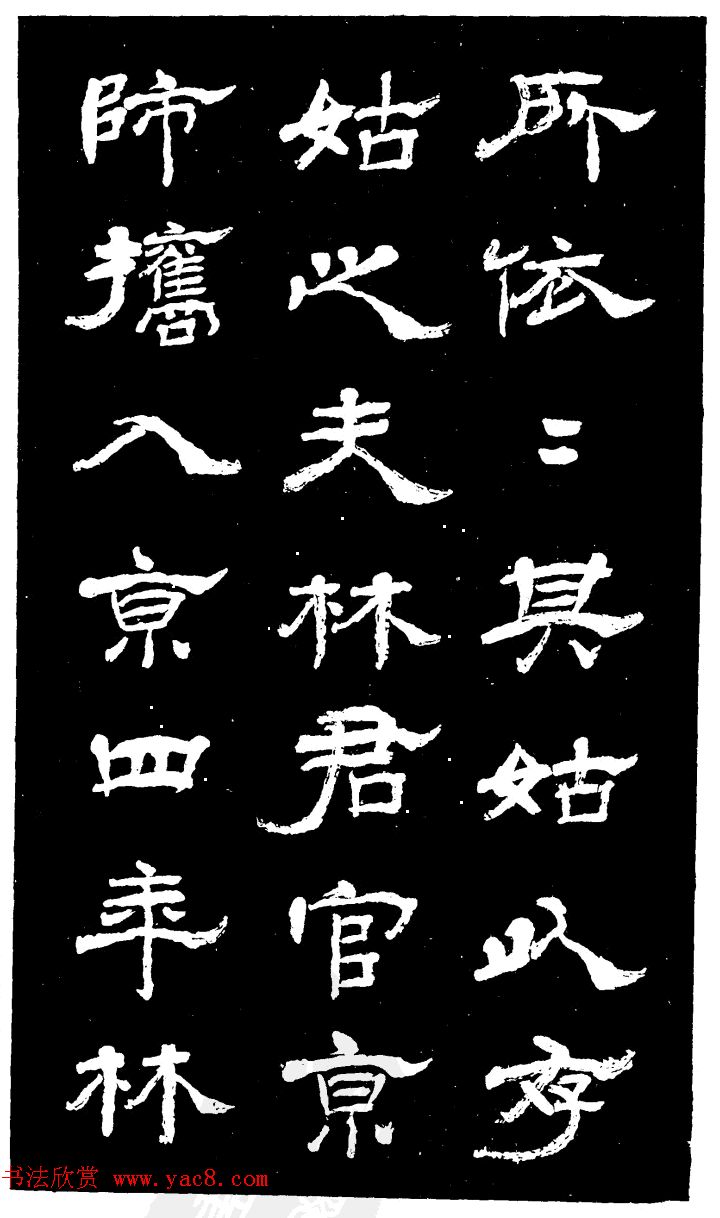 所依〻其姑以存
姑之夫林君官京
師攜入京四年林
书法欣赏 www.yac8.com